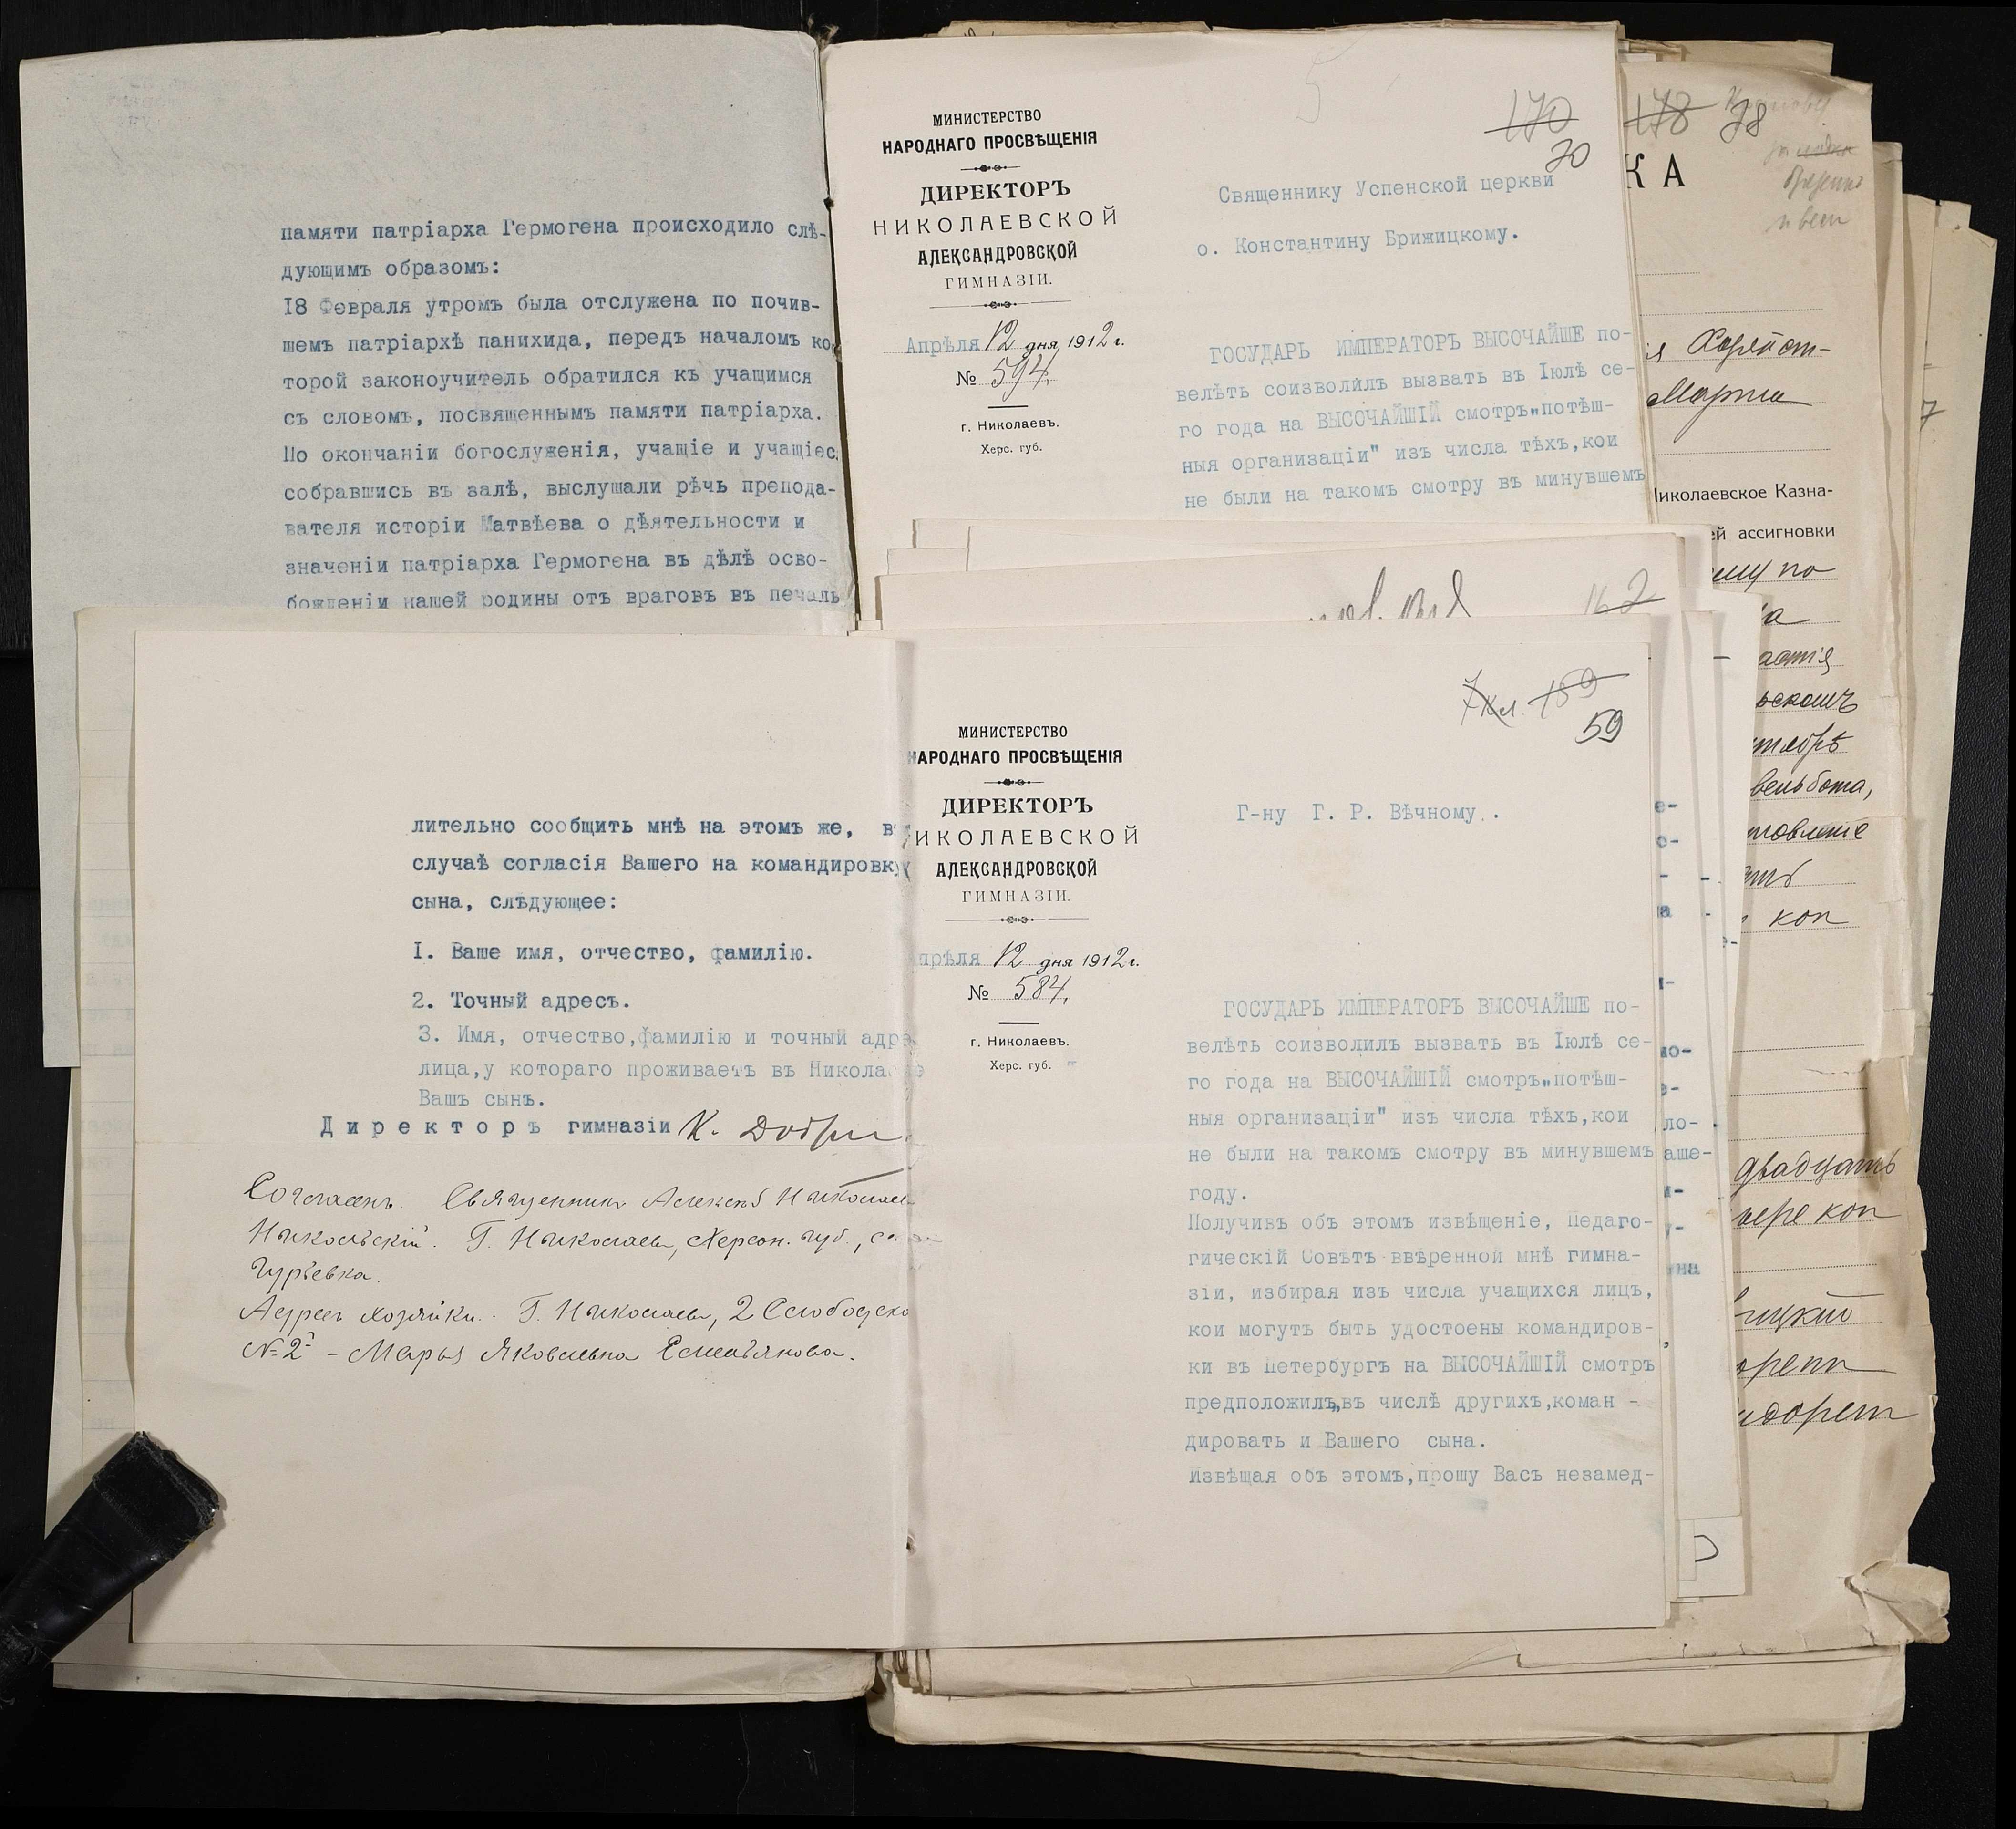 памяти патріарха Гермогена происходило слѣ-
дующимъ образомъ:
18 Февраля утромъ была отслужена по почив-
шемъ патріархѣ панихида, передъ началомъ ко
торой законоучитель обратился къ учащимся
съ словомъ, посвященнымъ памяти патріарха.
По окончаніи богослуженія, учащіе и учащіес
собравшись въ залѣ, выслушали рѣчь препода-
вателя исторіи Матвѣева о дѣятельности и
значеніи патріарха Гермогена въ дѣлѣ осво-
божденіи нашей родины отъ враговъ въ печаль
МИНИСТЕРСТВО
НАРОДНАГО ПРОСВѢЩЕНІЯ
ДИРЕКТОРЪ
НИКОЛАЕВСКОЙ
АЛЕКСАНДРОВСКОЙ
ГИМНАЗІИ.
Апрѣля 12 дня 1912 г.
№ 594.
г. Николаевъ.
Херс. губ.
170
70
Священнику Успенской церкви
о. Константину Брижицкому.
ГОСУДАРЬ ИМПЕРАТОРЪ ВЫСОЧАЙШЕ по-
велѣть соизволилъ вызвать въ Іюлѣ се-
го года на ВЫСОЧАЙШІЙ смотръ„потѣш-
ныя организаціи" изъ числа тѣхъ,кои
не были на такомъ смотру въ минувшемъ
178 78
КА
Марти
Николаевское Казна-
ей ассигновки
по
коп
двадцать
коп
162
лительно сообщить мнѣ на этомъ же, в
случаѣ согласія Вашего на командировку
сына, слѣдующее:
1. Ваше имя, отчество, фамилію.
2. Точный адресъ.
3. Имя, отчество,фамилію и точный адре
лица,у котораго проживаетъ въ Никола
Вашъ сынъ.
Директоръ гимназіи К. Добр
Согласенъ. Священникъ Алексѣй Николаев
Никольскій. Г. Николаевъ, Херсон. губ., с
Гурьевка.
Адресъ хозяйки. Г. Николаевъ, 2 Слободско
№ 2й - Марья Яковлевна Емельянова.
МИНИСТЕРСТВО
НАРОДНАГО ПРОСВѢЩЕНІЯ
ДИРЕКТОРЪ
НИКОЛАЕВСКОЙ
АЛЕКСАНДРОВСКОЙ
ГИМНАЗІИ.
прѣля 12 дня 1912 г.
№ 584.
г. Николаевъ.
Херс. губ.
7 кл. 159
59
Г-ну Г. Р. Вѣчному.
ГОСУДАРЬ ИМПЕРАТОРЪ ВЫСОЧАЙШЕ по-
велѣть соизволилъ вызвать въ Іюлѣ се-
го года на ВЫСОЧАЙШІЙ смотръ„потѣш-
ныя организаціи" изъ числа тѣхъ,кои
не были на такомъ смотру въ минувшемъ
году.
Получивъ объ этомъ извѣщеніе, Педаго-
гическій Совѣтъ ввѣренной мнѣ гимна-
зіи, избирая изъ числа учащихся лицъ,
кои могутъ быть удостоены командиров-
ки въ Петербургъ на ВЫСОЧАЙШІЙ смотръ
предположилъ,въ числѣ другихъ,коман -
дировать и Вашего сына.
Извѣщая объ этомъ,прошу Васъ незамед-